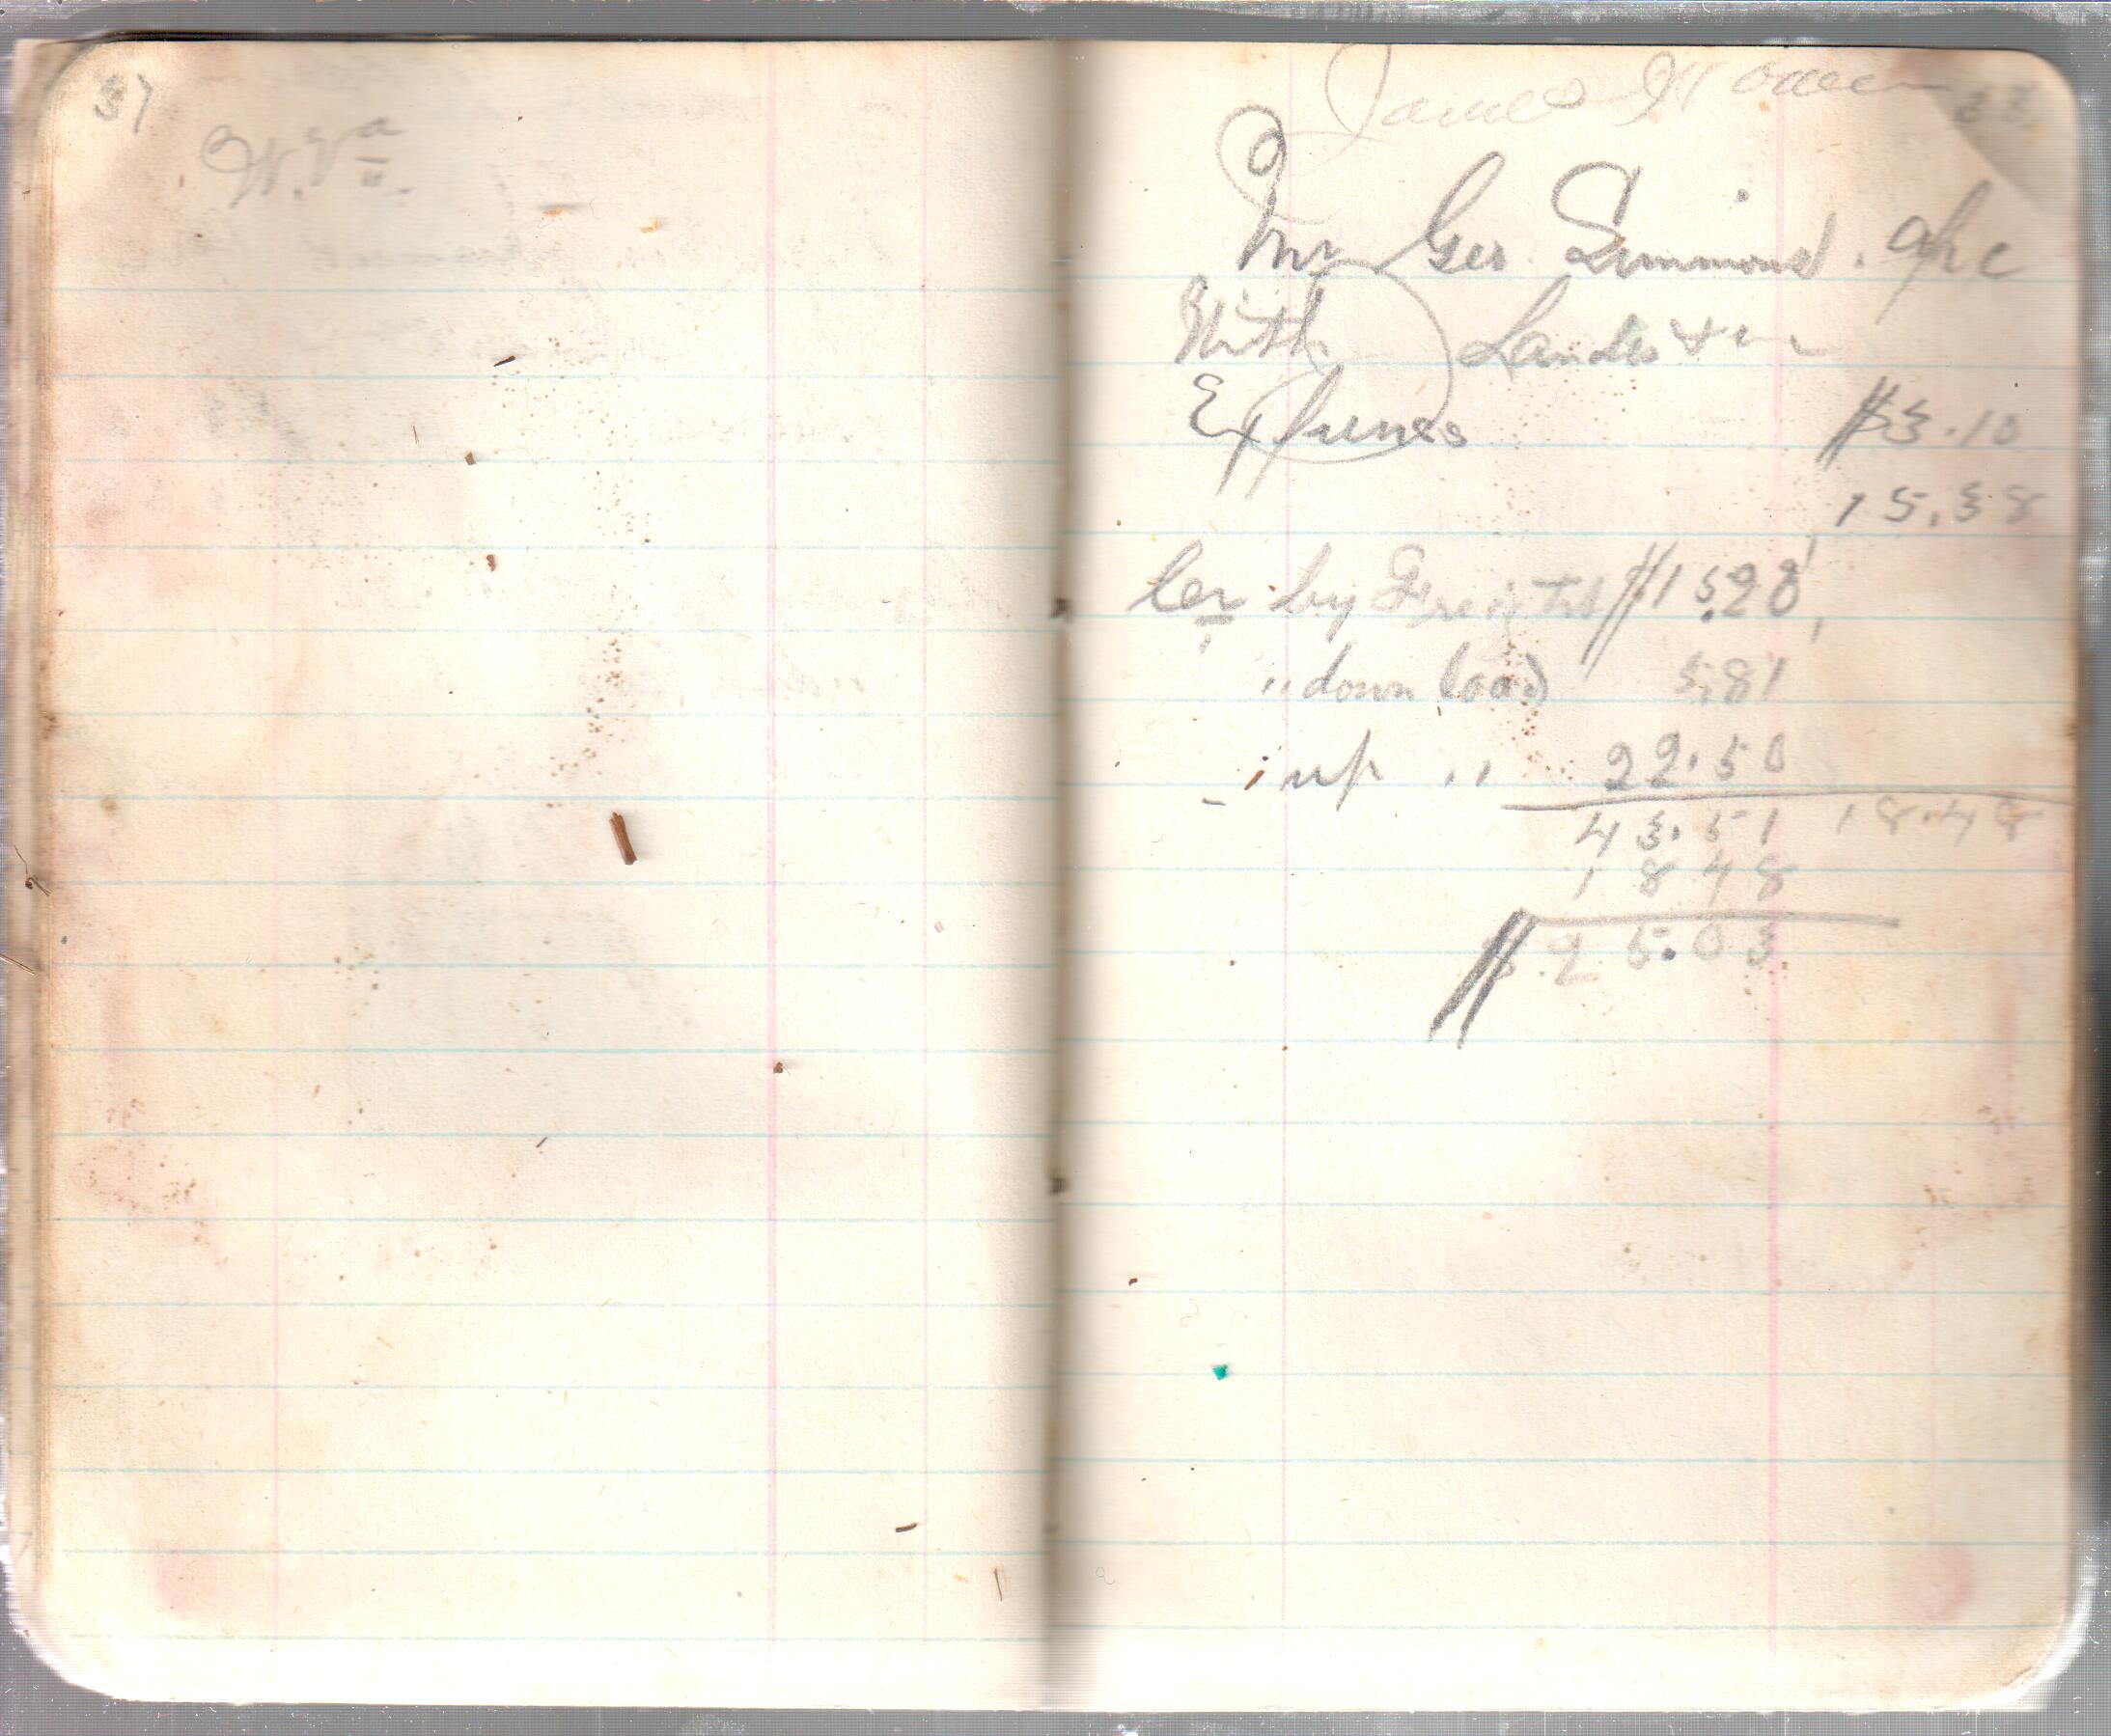 37
W. Va.
James
33
Mr Geo. Simmond. a/c
With
Expenses $3.10
15.38
Cr by Freights $15.20
" down load 5.81
" up " 22.50
43.51 18.48
18 48
$25.03